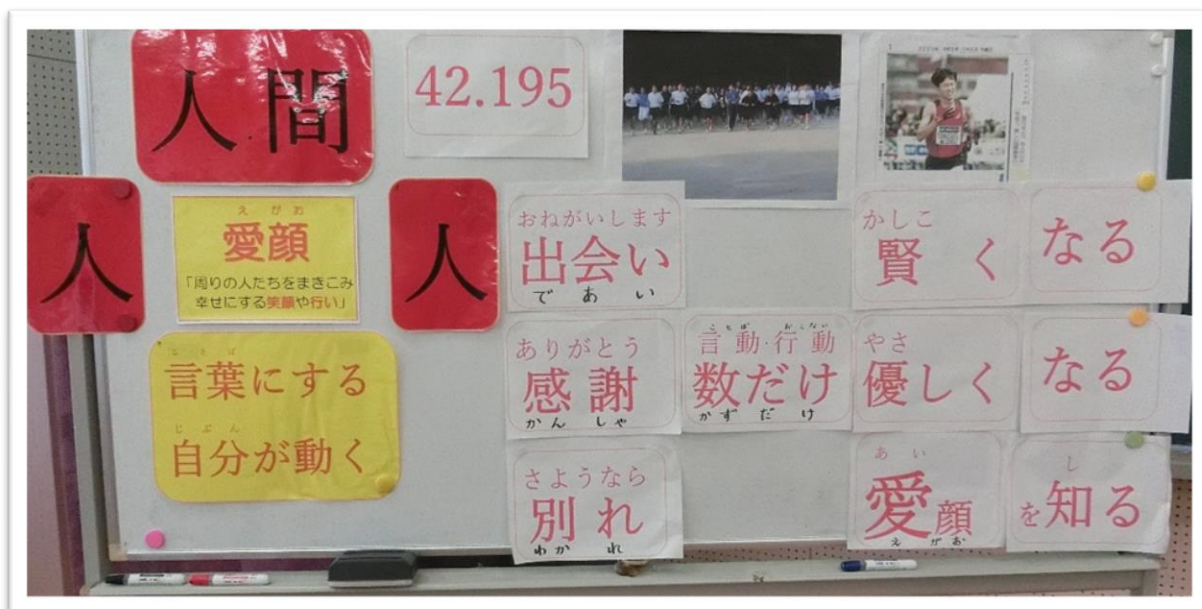 人間
42.195
人
えがお
愛顔
「周りの人たちをまきこみ
幸せにする笑顔や行い」
人
ことば
言葉にする
じぶん
自分が動く
おねがいします
出会い
であい
ありがとう
感謝
かんしゃ
さようなら
別れ
わかれ
ことば おこない
言動・行動
数だけ
かずだけ
かしこ
賢く
なる
やさ
優しく
なる
あい
愛顔
えがお
し
を知る